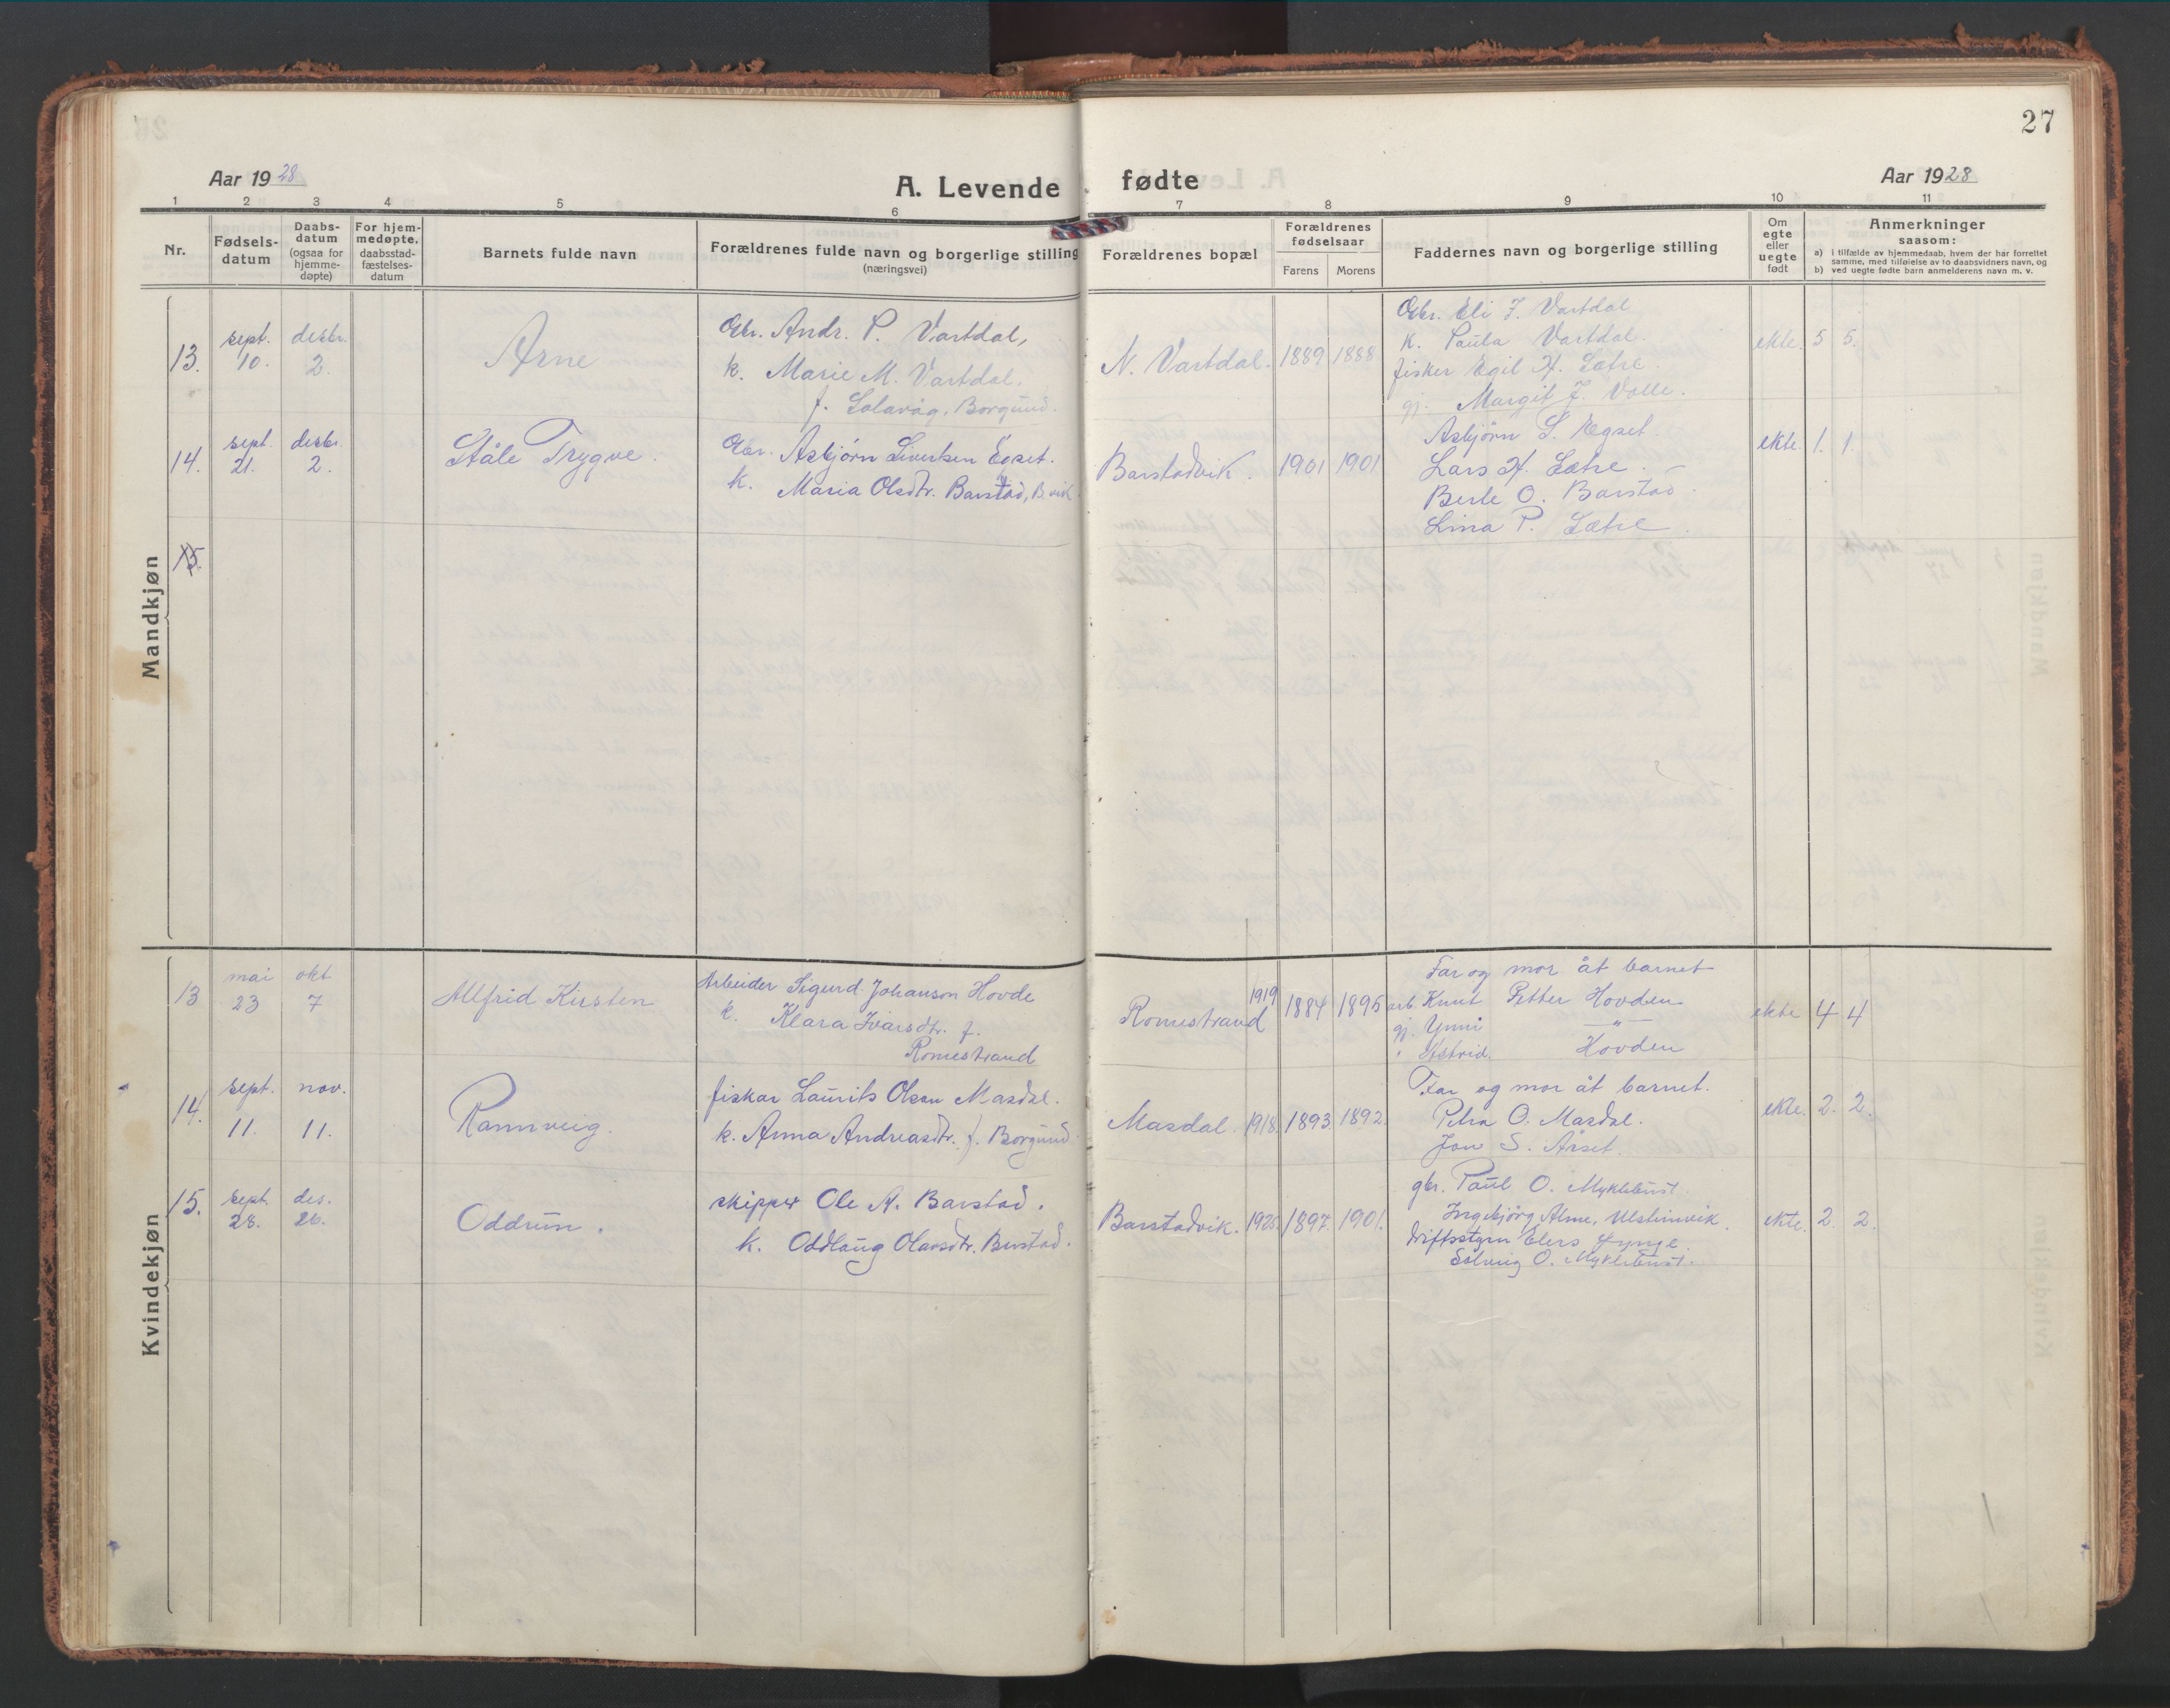 27
Aar 1928
A. Levende fødte
Aar 1928
1 2 3 4 5 6 7 8 9 10 11
Nr.
Fødsels-
datum
Daabs-
datum
(ogsaa for
hjemme-
døpte)
For hjem-
medøpte,
daabsstad-
fæstelses-
datum
Barnets fulde navn
Forældrenes fulde navn og borgerlige stilling
(næringsvei)
Forældrenes bopæl
Forældrenes
fødselsaar
Farens Morens
Faddernes navn og borgerlige stilling
Om
egte
eller
uegte
født
Anmerkninger
saasom:
a) i tilfælde av hjemmedaab, hvem der har forrettet
samme, med tilføielse av to daabsvidners navn, og
b) ved uegte fødte barn anmelderens navn m. v.
Mandkjøn
13.
sept.
10.
desbr.
2.
Arne
Gbr. Andr. P. Vartdal,
k. Marie M. Vartdal,
f. Solavåg, Borgund.
N. Vartdal.
1889 1888
Gbr. Eli J. Vartdal
k. Paula Vartdal.
fisker Egil H. Sætre.
gj. Margit J. Volle.
ekte. 5 5.
14.
sept.
21.
desbr.
2.
Ståle Trygve.
Gbr. Asbjørn Sivertsen Egset.
k. Maria Olsdtr. Barstad, B.vik
Barstadvik.
1901 1901
Asbjørn S. Egset.
Lars H. Sætre.
Berte O. Barstad
Lina P. Sætre.
ekte. 1. 1.
15.
Kvindekjøn
13
mai
23
okt
7
Allfrid Kirsten
Arbeider Sigurd Johanson Hovde
k. Klara Ivarsdtr. f.
Romestrand
Romestrand
1919
1884 1895
Far og mor åt barnet
arb. Knut Petter Hovden
gj. Ynni —"—
" Astrid Hovden
ekte 4 4
14.
sept.
11.
nov.
11.
Rannveig.
fiskar Laurits Olsen Masdal.
k. Anna Andreasdtr. f. Borgund
Masdal. 1918. 1893. 1892.
Far og mor åt barnet.
Petra O. Masdal.
Jon S. Årset.
ekte. 2. 2.
15.
sept.
28.
des.
26.
Oddrun.
skipper Ole A. Barstad.
k. Oddlaug Olavsdtr. Bustad.
Barstadvik. 1925. 1897. 1901.
gbr. Paul O. Myklebust.
Ingebjørg Alme, Ulsteinvik.
driftsstyrar Elers
Solveig O. Myklebust.
ekte. 2. 2.